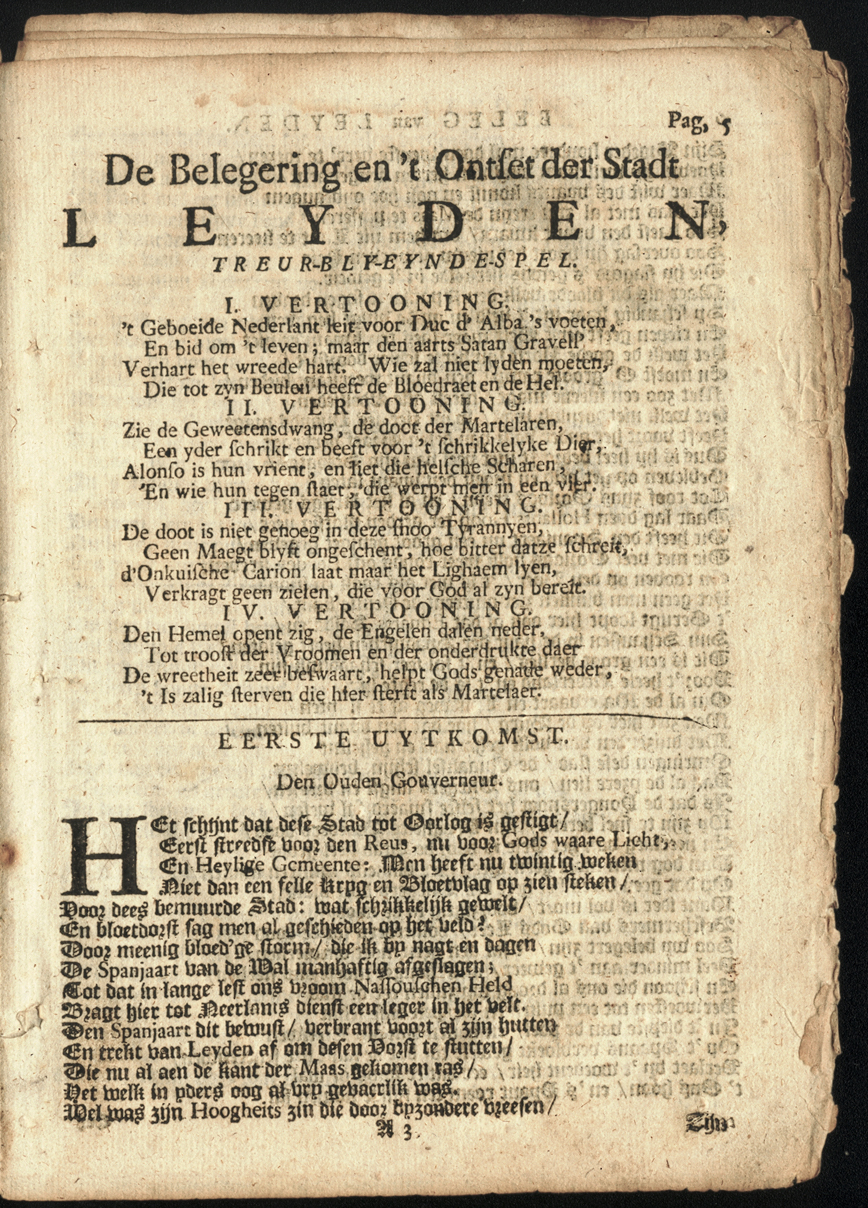 Pag, 5
De Belegering en 't Ontſet der Stadt
LEYDEN,
TREUR-BLY-EYNDESPEL.
I. VERTOONING.
't Geboeide Nederlant leit voor Duc d' Alba 's voeten,
En bid om 't leven; maar den aarts Satan Gravell'
Verhart het wreede hart. Wie zal niet lyden moeten,
Die tot zyn Beulen heeft de Bloedraet en de Hel.
II. VERTOONING.
Zie de Geweetensdwang, de doot der Martelaren,
Een yder ſchrikt en beeft voor 't ſchrikkelyke Dier,
Alonſo is hun vrient, en liet die helſche Scharen,
'En wie hun tegen ſtaet, die werpt men in een vier.
III. VERTOONING.
De doot is niet genoeg in deze ſnoo Tyrannyen,
Geen Maegt blyft ongeſchent, hoe bitter datze ſchreit,
d'Onkuiſche Carion laat maar het Lighaem lyen,
Verkragt geen zielen, die voor God al zyn bereit.
IV. VERTOONING.
Den Hemel opent zig, de Engelen dalen neder,
Tot trooſt der Vroomen en der onderdrukte daer
De wreetheit zeer beſwaart, helpt Gods genade weder,
't Is zalig ſterven die hier ſterft als Martelaer.
EERSTE UYTKOMST.
Den Ouden Gouverneur.
HEt ſchijnt dat deſe Stad tot Oorlog is geſtigt/
Eerſt ſtreedſe voor den Reus, nu voor Gods waare Licht,
En Heylige Gemeente: Men heeft nu twintig weken
Niet dan een felle kryg en Bloetvlag op zien ſteken/
Voor dees bemuurde Stad: wat ſchrikkelijk gewelt/
En bloetdorſt ſag men al geſchieden op het veld?
Door meenig bloed'ge storm/ die ik by nagt en dagen
De Spanjaart van de Wal manhaftig afgeslagen;
Tot dat in lange leſt ons vroom Naſſouſchen Held
Bragt hier tot Neerlants dienſt een leger in het velt.
Den Spanjaart dit bewuſt/ verbrant voort al zijn hutten
En trekt van Leyden af om deſen Vorſt te ſtutten/
Die nu al aen de kant der Maas gekomen ras/
Het welk in yders oog al vry gevaerlik was.
Wel was zijn Hoogheits zin die door byzondere vreeſen/
A 3.
Zijn